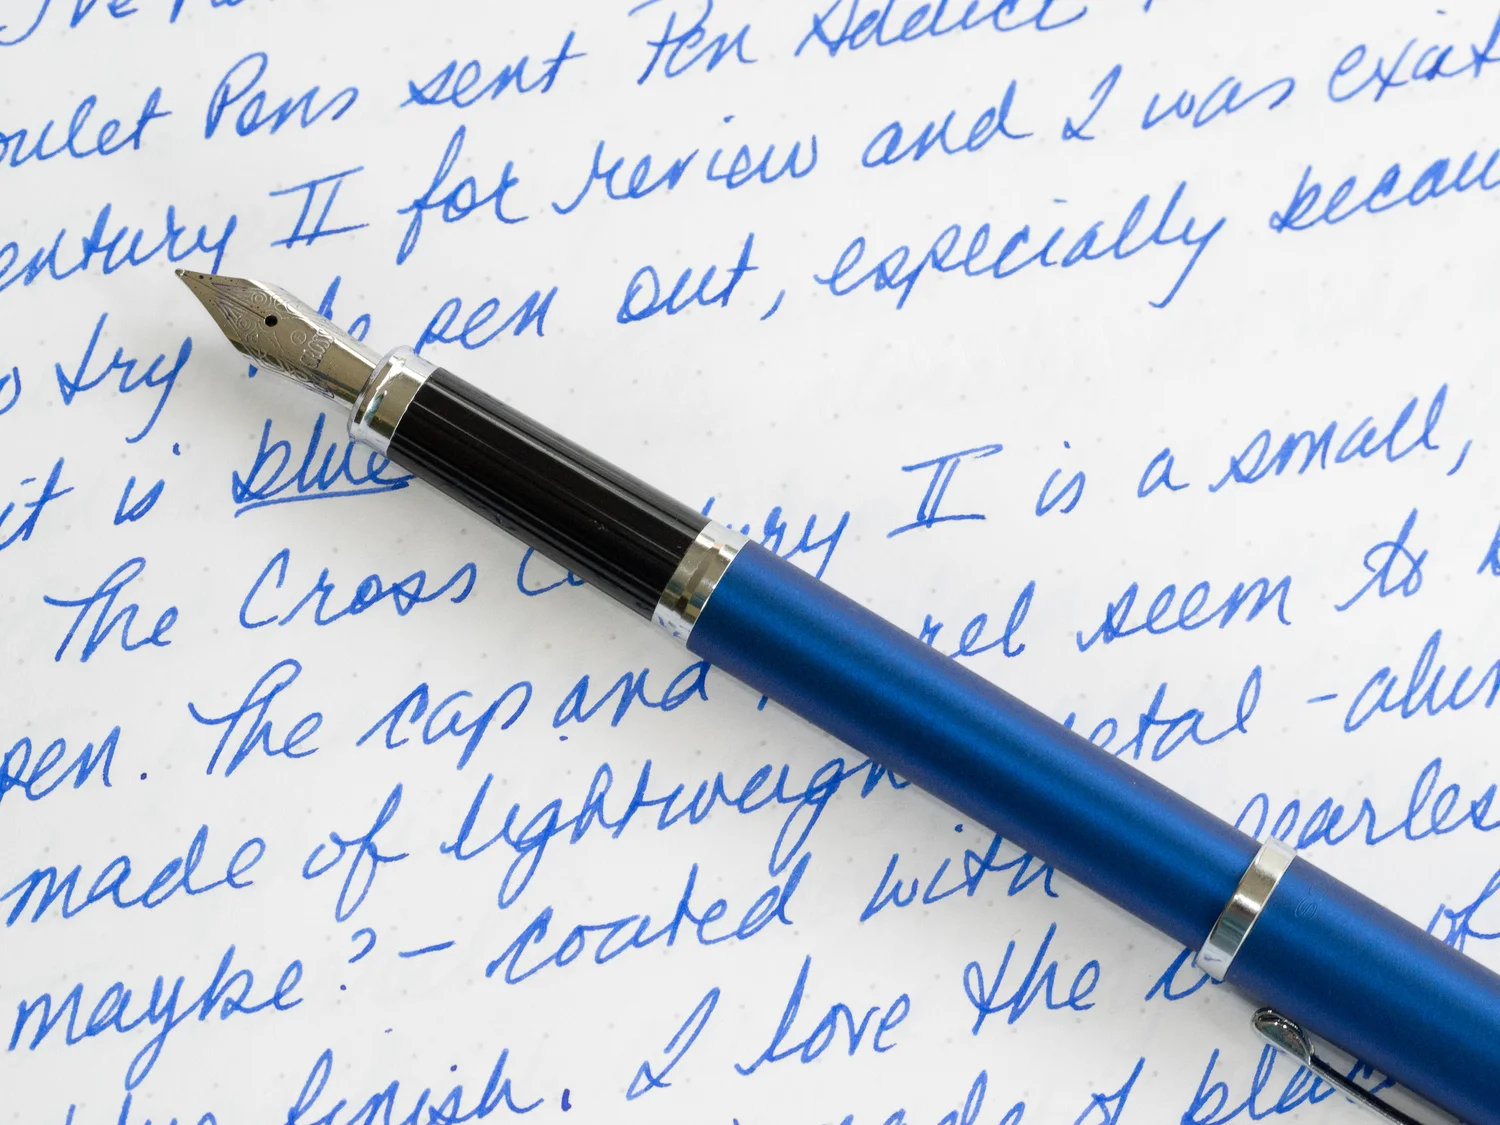 I've
oulet Pens sent Pen Addict
entury II for review and I was excit
o try the pen out, especially becau
it is blue
The Cross C ury II is a small,
pen. The cap and rel seem to b
made of lightweigh etal - alum
maybe? - coated with pearles
finish. I love the c of
made of blac
CROSS